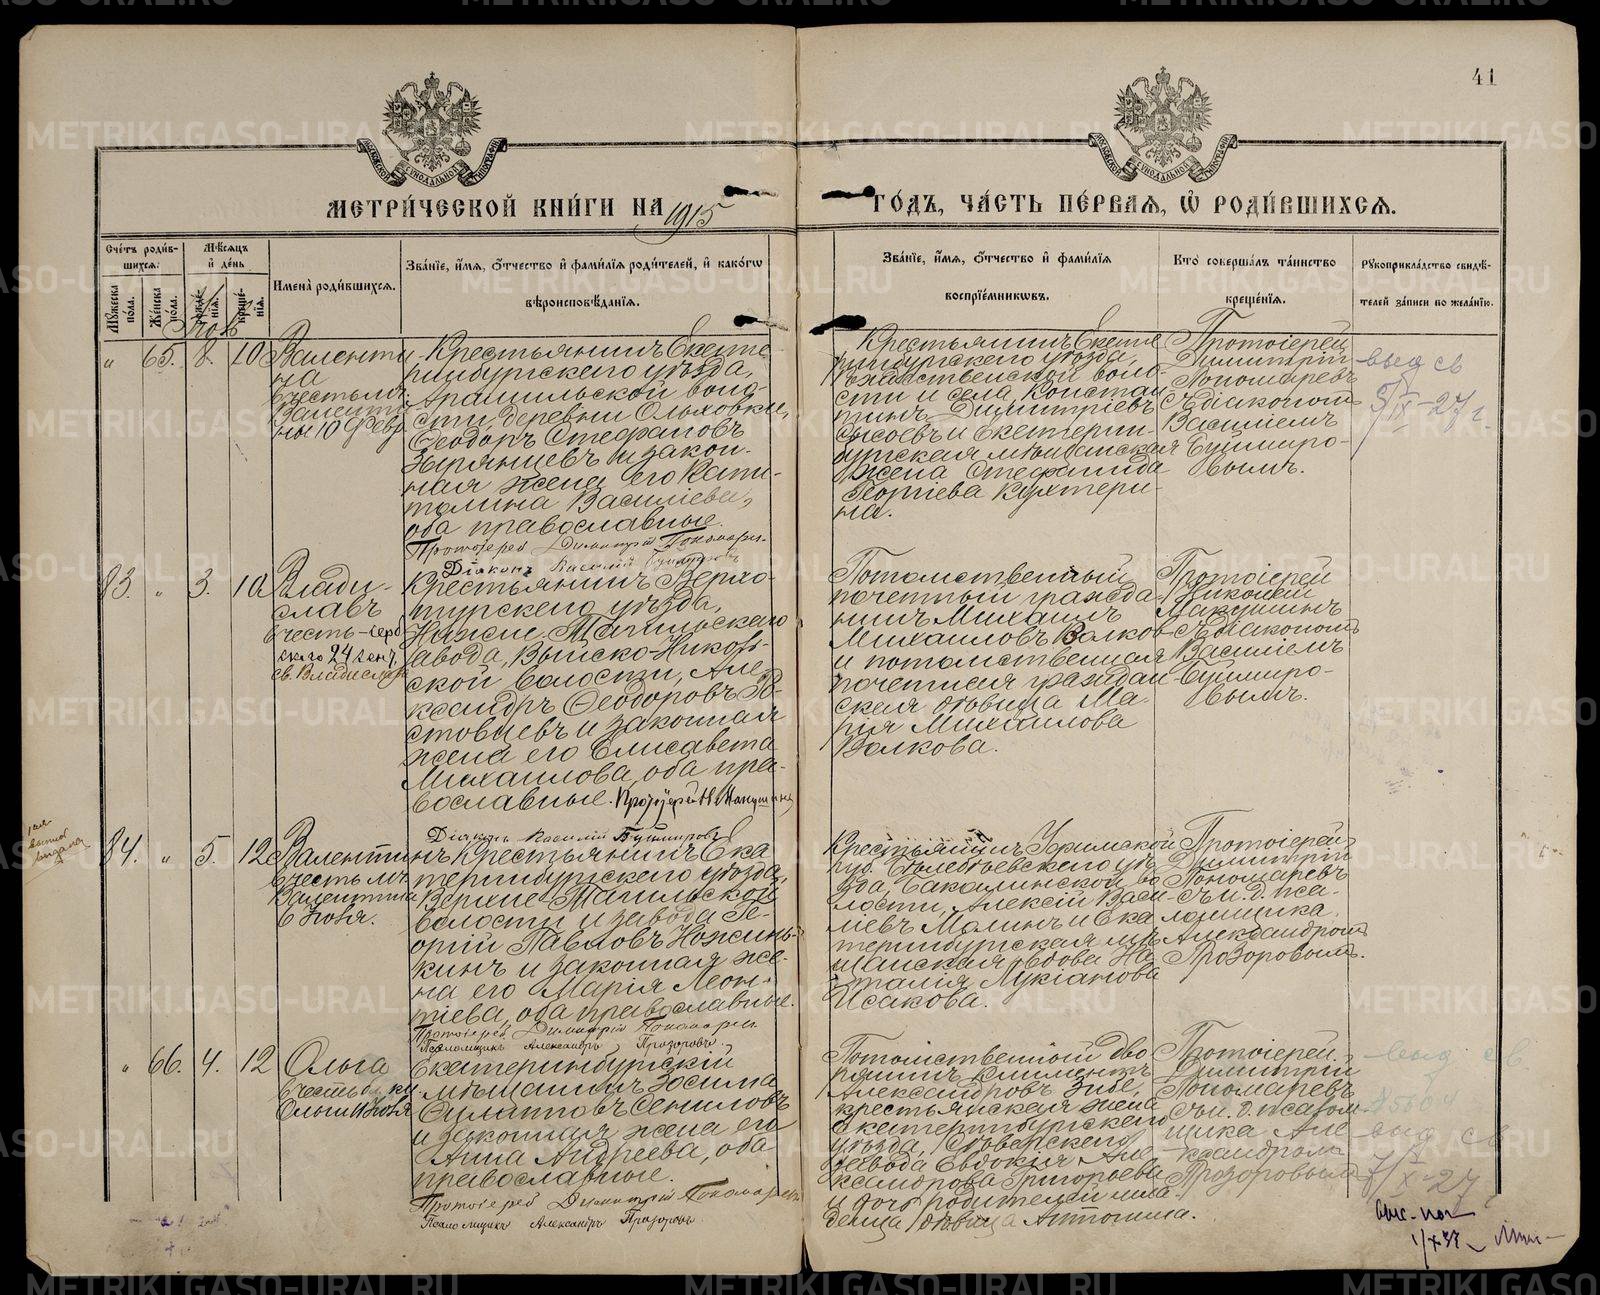 41
МЕТРИ́ЧЕСКОЙ КНИ́ГИ НА 1915 ГО́ДЪ, ЧА́СТЬ ПЕ́РВАЯ, Ѽ РОДИ́ВШИХСЯ.
Сче́тъ роди́в-
шихся:
Мꙋжеска по́ла.
Же́нска по́ла.
Мѣ́сяцъ
и҆ де́нь
креще́нїѧ.
И҆мена̀ роди́вшихся.
Зва́нїе, и҆́мѧ, ѻ҆́тчество и҆ фами́лїѧ роди́телей, и҆ како́гѡ
вѣроисповѣ́данїѧ.
Зва́нїе, и҆́мѧ, ѻ҆́тчество и҆ фами́лїѧ
воспрїе́мникѡвъ.
Кто̀ соверша́лъ та́инство
креще́нїѧ.
Рꙋкоприкла́дство свидѣ́-
телей за́писи по жела́нїю.
" 65. 8. 10
Валенти-
на
въ честь мч.
Валенти
ны 10 февр
Крестьянинъ Екате-
ринбургскаго уѣзда,
Арамильской воло-
сти, деревни Ольховки,
Ѳеодоръ Стефановъ
Зырянцевъ и закон-
ная жена его Капи-
толина Василіева,
оба православные.
Протоіерей Димитрій Пономарев
Діаконъ Василій
Крестьянинъ Екате
ринбургскаго уѣзда,
сти и села, Констан
тинъ Димитріевъ
Сысоевъ и Екатерин-
бургская мѣщанская
жена Стефанида
Георгіева Кухтери-
на.
Протоіерей
Димитрій
Пономаревъ
съ діакономъ
Василіемъ
выд св
5/IX-27 г.
83. " 3. 10
Влади-
славъ
въ честь серб
скаго 24 сент.
св. Владислава
Крестьянинъ Верхо-
турскаго уѣзда,
Нижне-Тагильскаго
завода, Выйско-Николь-
ской волости, Але-
ксандръ Ѳеодоровъ Ро-
стовцевъ и законная
жена его Елисавета
Михаилова, оба пра-
вославные. Протоіерей Н. Макушинъ
Діаконъ Василій
Потомственный
почетный гражда-
нинъ Михаилъ
Михаиловъ Волковъ
и потомственная
почетная граждан-
ская дѣвица Ма-
рія Михаилова
Волкова.
Протоіерей
Николай
Макушинъ
съ діакономъ
Василіемъ
84. " 5. 12
Валентинъ
въ честь мч.
Валентина
Крестьянинъ Ека
теринбургскаго уѣзда,
Верхне-Тагильской
волости и завода Ге-
оргій Павловъ
и законная же-
на его Марія Леон-
тіева, оба православные.
Протоіерей Димитрій Пономарев
Псаломщикъ Александръ Прозоровъ.
Крестьянинъ Уфимской
губ. Белебеевскаго уѣ
зда, Бакалинской во
лости, Алексій Васи-
ліевъ Малинъ и Ека
теринбургская мѣ
щанская вдова На-
талія Лукіанова
Исакова.
Протоіерей
Димитрій
Пономаревъ
съ и. д. пса-
ломщика
Александромъ
Прозоровымъ.
" 66. 4. 12
Ольга
въ честь
Ольги
Екатеринбургскій
мѣщанинъ Зосима
и законная жена его
Анна Андреева, оба
православные.
Протоіерей Димитрій Пономарев
Псаломщикъ Александръ Прозоровъ.
Потомственный дво
рянинъ Климентъ
Александровъ
крестьянская жена
Екатеринбургскаго
уѣзда,
завода Евдокія Але-
ксандрова Григорьева
и дочь родителей
дѣвица Антонина.
Протоіерей
Димитрій
Пономаревъ
съ и. д. псалом-
щика Але
ксандромъ
Прозоровымъ
выд св
выд св
7/X-27